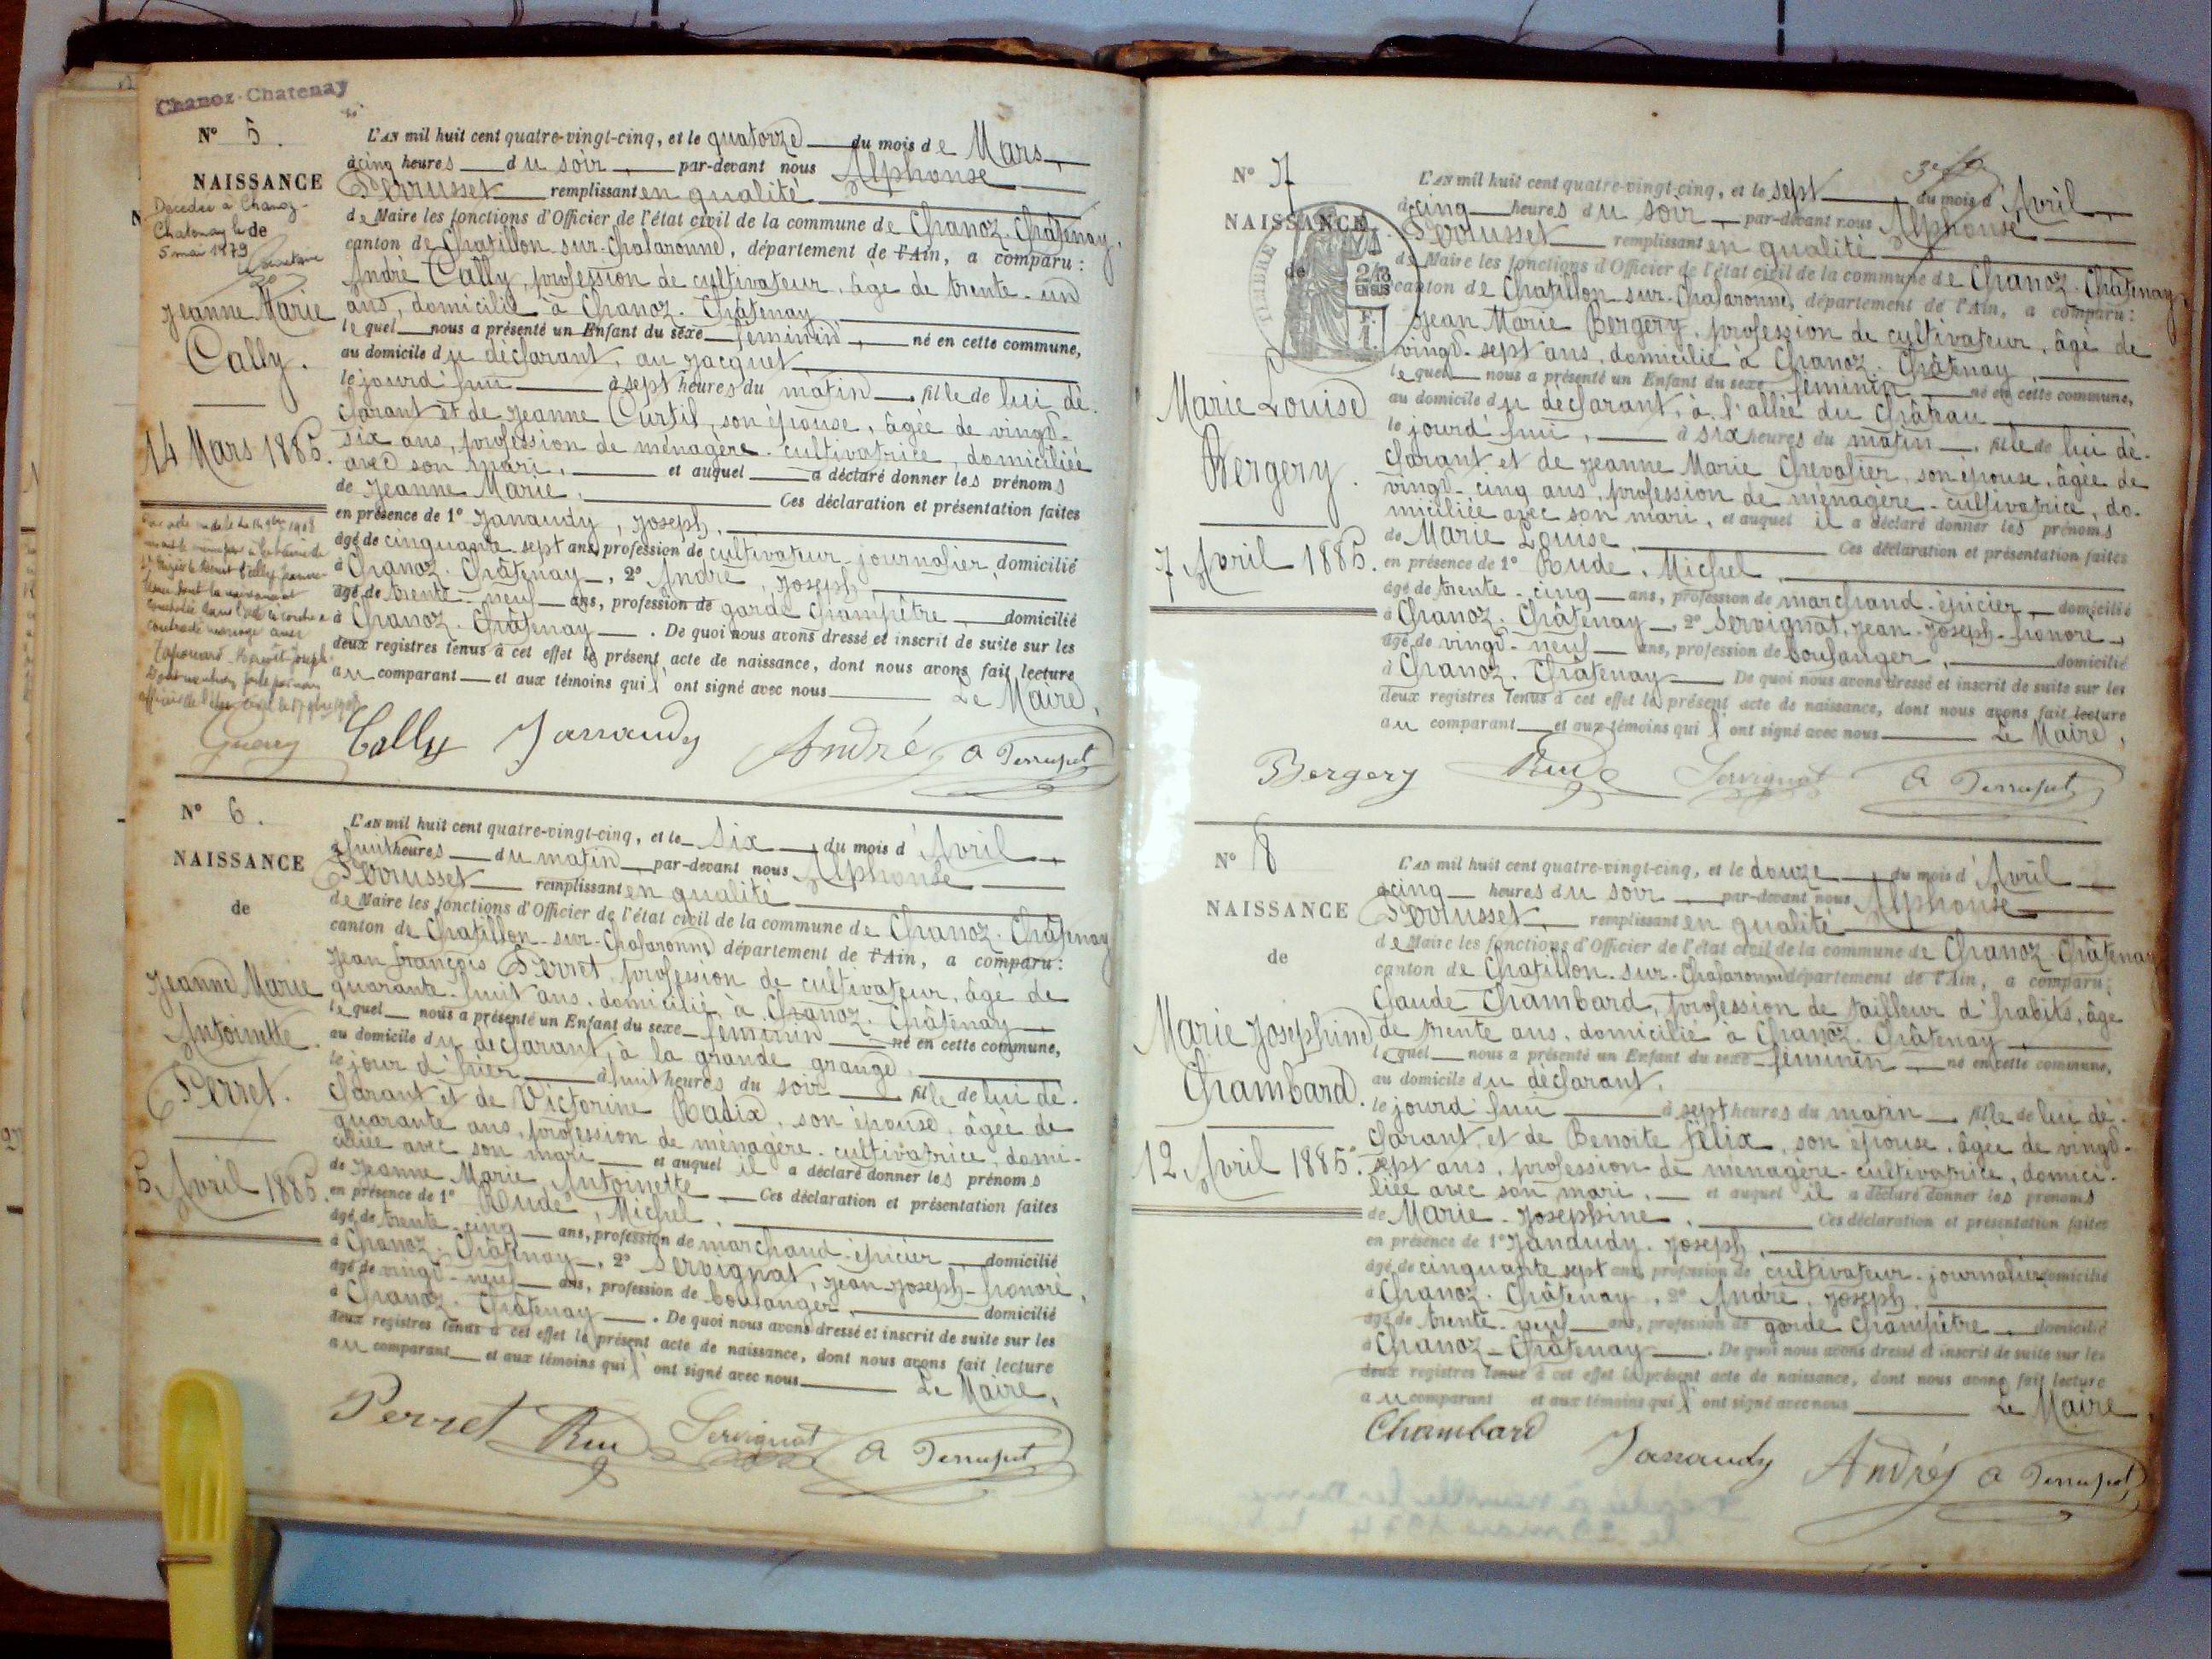 Chanoz-Chatenay
N° 5.
NAISSANCE
Décédée à Chanoz-
Chatenay le
de
5 mai 1979
Jeanne Marie
Cally.
14 Mars 1885.
L'AN mil huit cent quatre-vingt-cinq, et le quatorze du mois de Mars,
à cinq heures du soir, par-devant nous Alphonse
Perrusset remplissant en qualité
de Maire les fonctions d'Officier de l'état civil de la commune de Chanoz-Châtenay,
canton de Chatillon-sur-Chalaronne, département de l'Ain, a comparu:
André Cally, profession de cultivateur, âgé de trente-un
ans, domicilié à Chanoz-Châtenay
lequel nous a présenté un Enfant du sexe féminin, né en cette commune,
au domicile du déclarant, au Jacquet
le jourd'hui à sept heures du matin, fille de lui dé-
clarant et de Jeanne Curtil, son épouse, âgée de vingt-
six ans, profession de ménagère-cultivatrice, domiciliée
avec son mari, et auquel a déclaré donner les prénoms
de Jeanne Marie. Ces déclaration et présentation faites
en présence de 1° Janaudy, Joseph,
âgé de cinquante-sept ans, profession de cultivateur-journalier, domicilié
à Chanoz-Châtenay, 2° André, Joseph,
âgé de trente-neuf ans, profession de garde champêtre, domicilié
à Chanoz-Châtenay. De quoi nous avons dressé et inscrit de suite sur les
deux registres tenus à cet effet le présent acte de naissance, dont nous avons fait lecture
au comparant et aux témoins qui l'ont signé avec nous
Le Maire,
Cally Janaudy André A Perrusset
N° 6.
NAISSANCE
de
Jeanne Marie
Antoinette
Perret.
5 Avril 1885.
L'AN mil huit cent quatre-vingt-cinq, et le six du mois d'Avril,
à huit heures du matin par-devant nous Alphonse
Perrusset remplissant en qualité
de Maire les fonctions d'Officier de l'état civil de la commune de Chanoz-Châtenay
canton de Chatillon-sur-Chalaronne, département de l'Ain, a comparu:
Jean François Perret, profession de cultivateur, âgé de
quarante-huit ans, domicilié à Chanoz-Châtenay
lequel nous a présenté un Enfant du sexe féminin né en cette commune,
au domicile du déclarant, à la grande grange
le jour d'hier à huit heures du soir fille de lui dé-
clarant et de Victorine Radix, son épouse, âgée de
quarante ans, profession de ménagère-cultivatrice, domi-
ciliée avec son mari et auquel il a déclaré donner les prénoms
de Jeanne Marie Antoinette. Ces déclaration et présentation faites
en présence de 1° Rude, Michel,
âgé de trente-cinq ans, profession de marchand-épicier, domicilié
à Chanoz-Châtenay, 2° Servignat, Jean-Joseph-honoré,
âgé de vingt-neuf ans, profession de boulanger, domicilié
à Chanoz-Châtenay. De quoi nous avons dressé et inscrit de suite sur les
deux registres tenus à cet effet le présent acte de naissance, dont nous avons fait lecture
au comparant et aux témoins qui l'ont signé avec nous
Le Maire,
Perret Rude Servignat A Perrusset
N° 7
NAISSANCE
de
TIMBRE
Marie Louise
Bergery.
7 Avril 1885.
L'AN mil huit cent quatre-vingt-cinq, et le sept du mois d'Avril,
à cinq heures du soir, par-devant nous Alphonse
Perrusset remplissant en qualité
de Maire les fonctions d'Officier de l'état civil de la commune de Chanoz-Châtenay
canton de Chatillon-sur-Chalaronne, département de l'Ain, a comparu:
Jean Marie Bergery, profession de cultivateur, âgé de
vingt-sept ans, domicilié à Chanoz-Châtenay,
lequel nous a présenté un Enfant du sexe féminin, né en cette commune,
au domicile du déclarant, à l'allée du Château
le jourd'hui, à six heures du matin, fille de lui dé-
clarant et de Jeanne Marie Chevalier, son épouse, âgée de
vingt-cinq ans, profession de ménagère-cultivatrice, do-
miciliée avec son mari, et auquel il a déclaré donner les prénoms
de Marie Louise. Ces déclaration et présentation faites
en présence de 1° Rude, Michel,
âgé de trente-cinq ans, profession de marchand-épicier, domicilié
à Chanoz-Châtenay, 2° Servignat, Jean-Joseph-honoré,
âgé de vingt-neuf ans, profession de boulanger, domicilié
à Chanoz-Châtenay De quoi nous avons dressé et inscrit de suite sur les
deux registres tenus à cet effet le présent acte de naissance, dont nous avons fait lecture
au comparant et aux témoins qui l'ont signé avec nous
Le Maire,
Bergery Rude Servignat A Perrusset
N° 8
NAISSANCE
de
Marie Josephine
Chambard.
12 Avril 1885.
L'AN mil huit cent quatre-vingt-cinq, et le douze du mois d'Avril
à cinq heures du soir par-devant nous Alphonse
Perrusset, remplissant en qualité
de Maire les fonctions d'Officier de l'état civil de la commune de Chanoz-Châtenay
canton de Chatillon-sur-Chalaronne département de l'Ain, a comparu:
Claude Chambard, profession de tailleur d'habits, âgé
de trente ans, domicilié à Chanoz-Châtenay,
lequel nous a présenté un Enfant du sexe féminin, né en cette commune,
au domicile du déclarant,
le jourd'hui à sept heures du matin, fille de lui dé-
clarant, et de Benoite Félix, son épouse, âgée de vingt-
sept ans, profession de ménagère-cultivatrice, domici-
liée avec son mari, et auquel il a déclaré donner les prénoms
de Marie-Josephine. Ces déclaration et présentation faites
en présence de 1° Janaudy, Joseph,
âgé de cinquante sept ans, profession de cultivateur-journalier domicilié
à Chanoz-Châtenay, 2° André, Joseph,
âgé de trente-neuf ans, profession de garde champêtre, domicilié
à Chanoz-Châtenay. De quoi nous avons dressé et inscrit de suite sur les
deux registres tenus à cet effet le présent acte de naissance, dont nous avons fait lecture
au comparant et aux témoins qui l'ont signé avec nous
Le Maire
Chambard Janaudy André A Perrusset